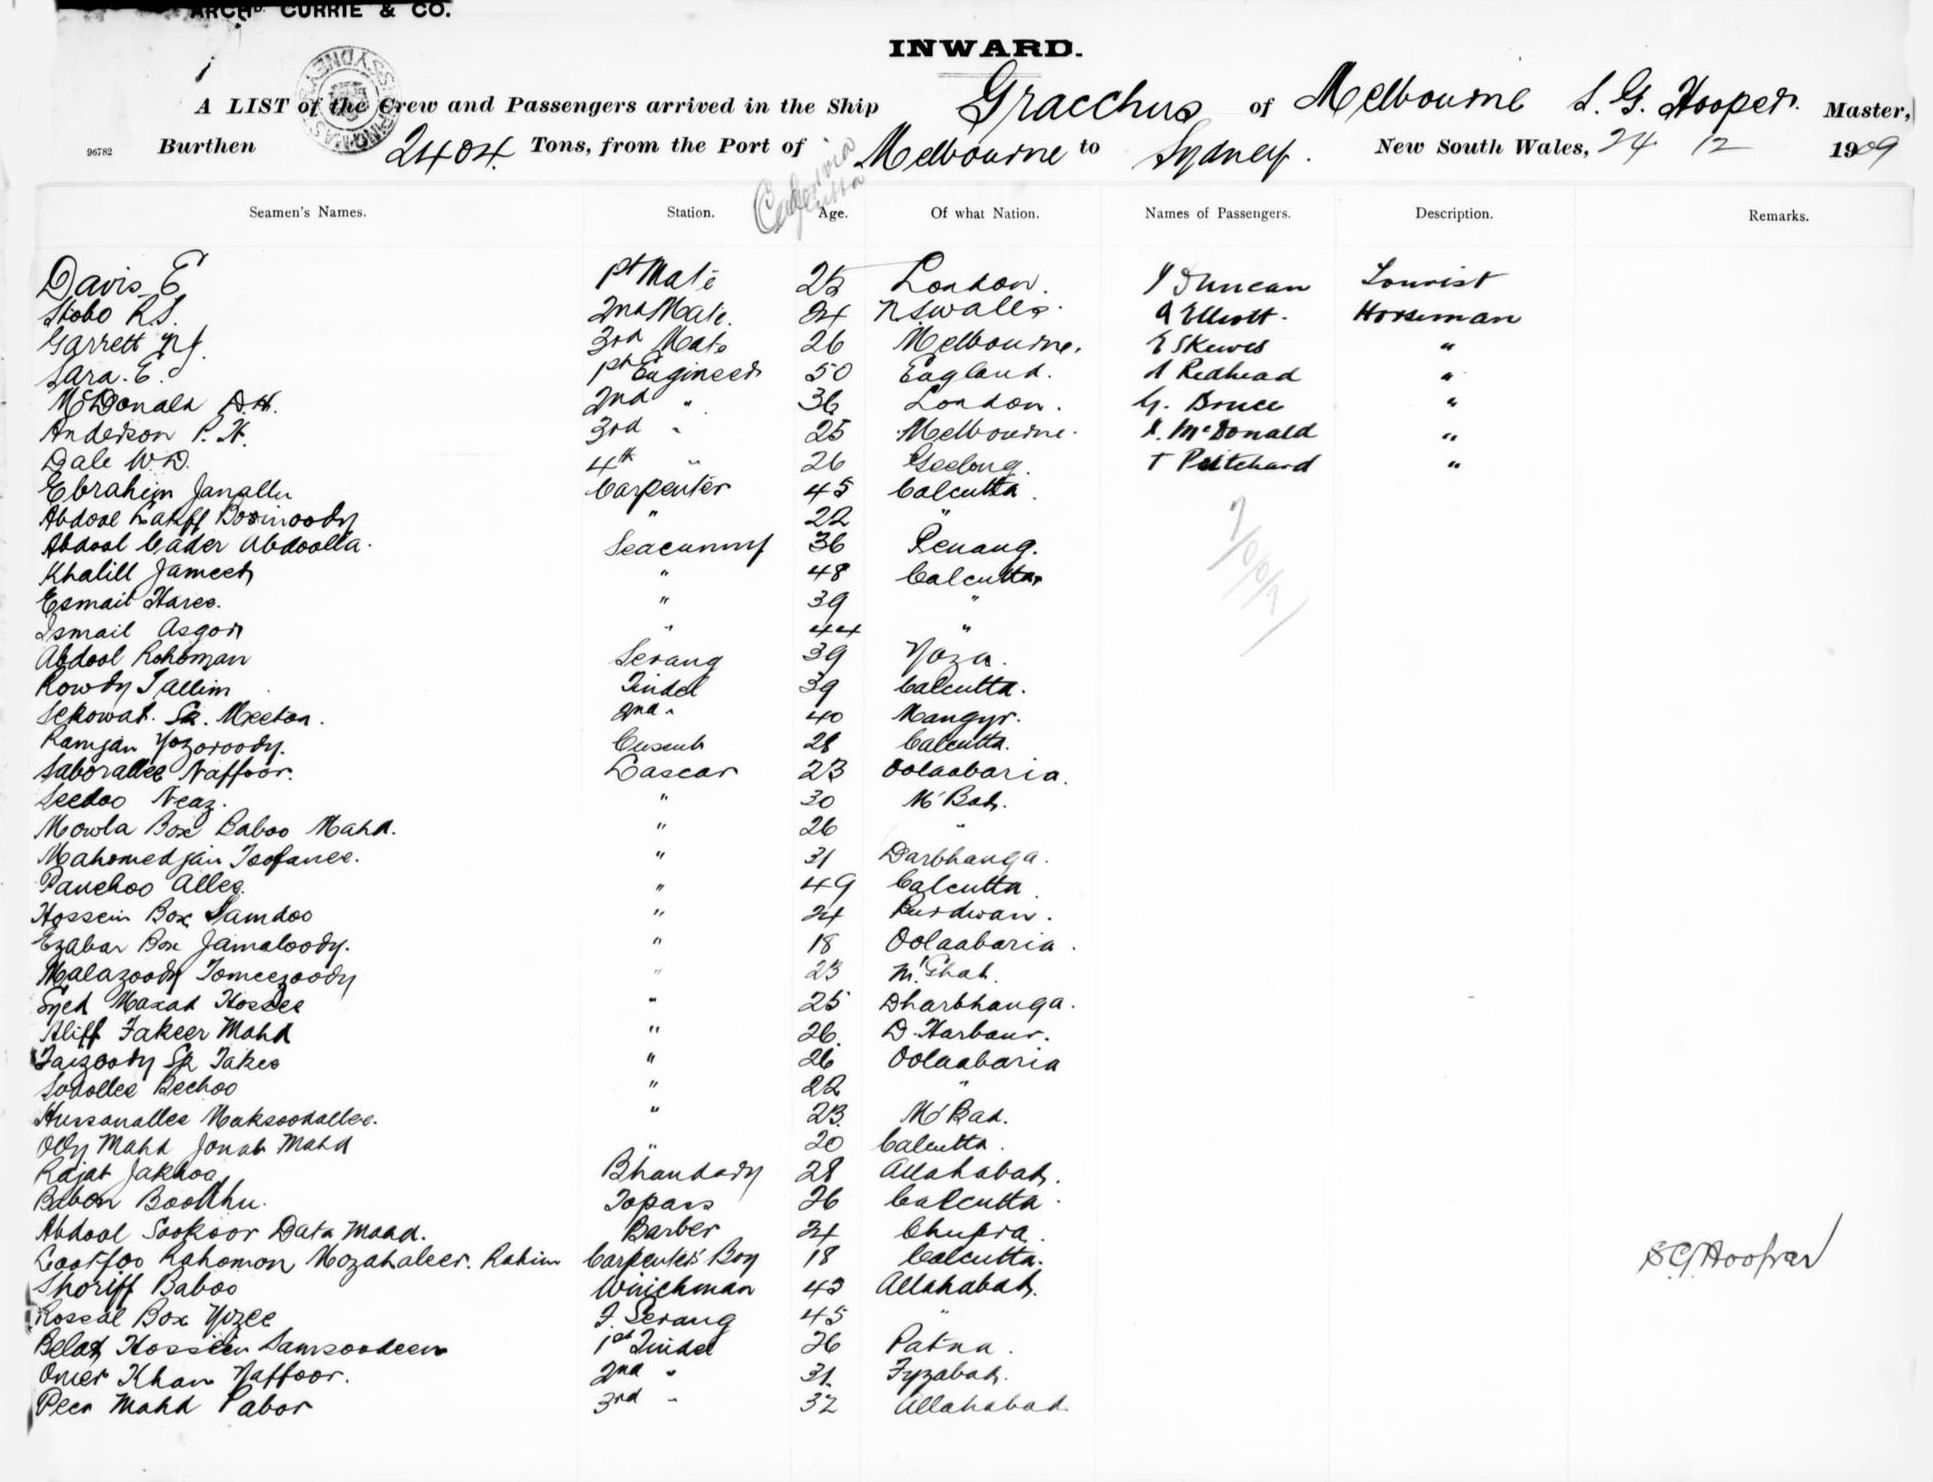 ARCHD. CURRIE & CO.
INWARD.
A LIST of the Crew and Passengers arrived in the Ship Gracchus of Melbourne S. G. Hooper. Master,
96782 Burthen 2404 Tons, from the Port of Melbourne to Sydney. New South Wales, 24 12 1909
Calcutta
Seamen's Names. Station. Age. Of what Nation. Names of Passengers. Description. Remarks.
Davis E 1st Mate 25 London. Duncan Tourist
Stobo R.S. 2nd Mate. 24 NSWales. Elliott. Horseman
Garrett 3rd Mate 26 Melbourne. E Skewes "
Sara. E. 1st Engineer 50 England. A Redhead "
McDonald D.H. 2nd " 36 London. G. Bruce "
Anderson P. H. 3rd " 25 Melbourne. McDonald "
Dale W.D. 4th " 26 Geelong. T Pritchard "
Ebrahim Janallu Carpenter 45 Calcutta.
Abdool " 22 "
Abdool Cader Abdoolla. Seacunny 36 Penang.
Khalill " 48 Calcutta
Esmail " 39 "
Ismail Asgor " 44 "
Abdool Rohoman Serang 39
Rowdy Tallim Tindel 39 Calcutta.
Sekowat. Sk. Meeton. 2nd " 40 Mangyr.
Ramjan 28 Calcutta.
Saborallee Naffoor. Lascar 23 Oolaabaria.
Seedoo Neaz. " 30 M'Bad.
Mowla Box Baboo Mahd. " 26 "
Mahomedjan " 31 Darbhanga.
Panchoo Allee " 49 Calcutta.
Hossein Box Samdoo " 24 Burdwan.
Ezabar Box Jamaloody. " 18 Oolaabaria.
Tomeezoody " 23
Syed " 25 Dharbhanga.
Aliff Fakeer Mahd " 26. D. Harbour.
Faizoody Sk " 26 Oolaabaria
Bechoo " 22 "
Hussanallee Maksoodallee. " 23. M'Bad.
Olly Mahd Jonab Mahd " 20 Calcutta.
Rajab Bhandary 28 Allahabad.
Baben Topass 26 Calcutta.
Abdool Sookoor Data Mahd. Barber 24 Chupra.
Rahomon Rahim Carpenter's Boy 18 Calcutta.
S.G. Hooper
Shoriff Baboo Winchman 43 Allahabad.
Box F. Serang 45 "
Hossein Samsoodeen 1st Tindel 26 Patna.
Omer Khan Naffoor. 2nd " 31. Fyzabad.
Peer Mahd 3rd " 32 Allahabad.